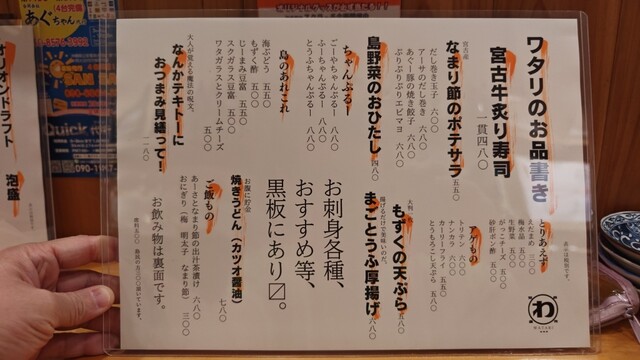 ワタリのお品書き
表示は税別です。
宮古牛炙り寿司
一貫四八〇
宮古産
なまり節のポテサラ
五五〇
だし巻き玉子 六〇〇
アーサのだし巻き 六八〇
あぐー豚の焼き餃子 六八〇
ぷりぷりぷりエビマヨ 六八〇
島野菜のおひたし
四八〇
ちゃんぷるー
ごーやちゃんぷるー 八八〇
ふーちゃんぷるー 八八〇
とうふちゃんぷるー 八八〇
島のあれこれ
海ぶどう 五五〇
もずく酢 五〇〇
じーまみ豆富 五五〇
スクガラス豆富 五五〇
ワタガラスとクリームチーズ 五〇〇
大人が覚える魔法の呪文。
なんかテキトーに
おつまみ見繕って!
一一八〇
とりあえず
えだまめ 三〇〇
梅水晶 五〇〇
生野菜 五〇〇
がっこチーズ 五〇〇
砂肝ポン酢 五〇〇
アゲもの
トリカラ 六〇〇
ナンカツ 六〇〇
カーリーフライ 五五〇
とうもろこし天ぷら 五八〇
大判
もずくの天ぷら
五八〇
揚げるだけで美味いのだ。
まごとうふ厚揚げ
六八〇
お刺身各種、
おすすめ等、
黒板にあり〼。
お腹に貯金
焼きうどん(カツオ醤油)
七八〇
ご飯もの
あーさとなまり節の出汁茶漬け 六八〇
おにぎり(梅 明太子 なまり節) 三〇〇
お飲み物は裏面です。
わ
WATARI
オリオンドラフト
泡盛
あぐちゃん
Quick